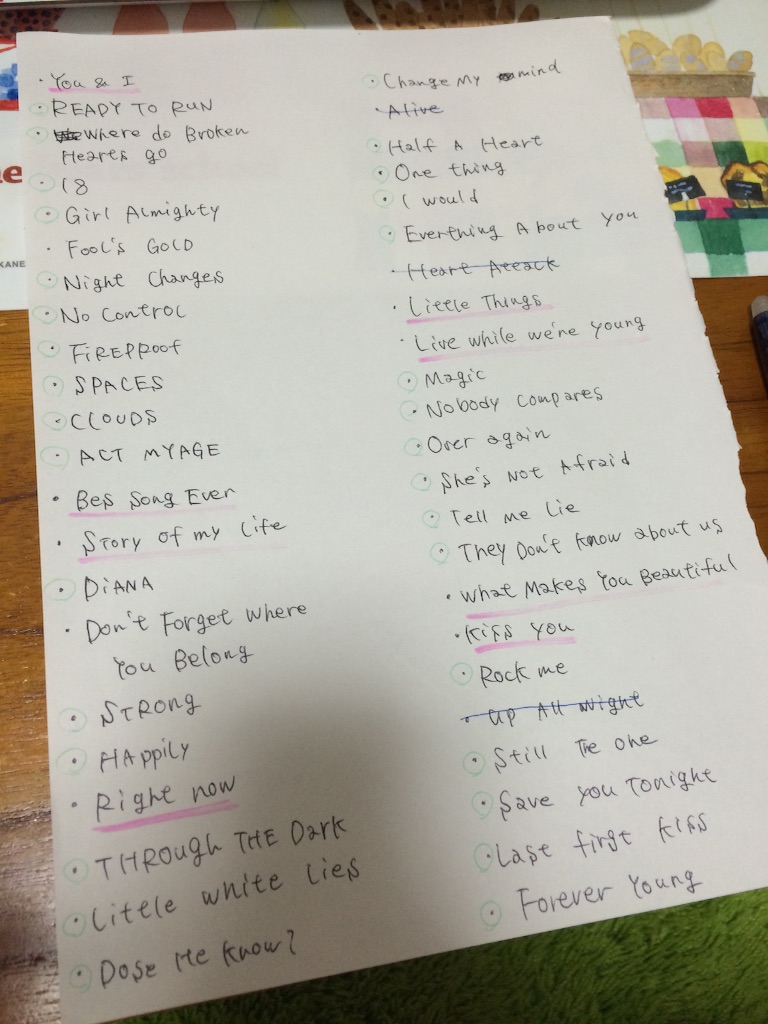 You & I
READY TO RUN
Where do Broken
Hearts go
18
Girl Almighty
Fool's Gold
Night Changes
No Control
FiREPROof
SPACES
CLOUDS
ACT MYAGE
Bes Song Ever
Story of my Life
DiANA
Don't Forget where
You Belong
STRONg
HAppily
Right now
THROUGh THE Dark
Little white Lies
Dose He know?
Change My mind
Alive
Half A Heart
One thing
I would
Everthing About you
Heart Attack
Little Things
Live while we're young
Magic
Nobody compares
Over again
She's Not Afraid
Tell me Lie
They Don't know about us
what Makes You Beautiful
Kiss you
Rock me
Up All Night
Still The one
Save you Tonight
Last first kiss
Forever Young
KANE